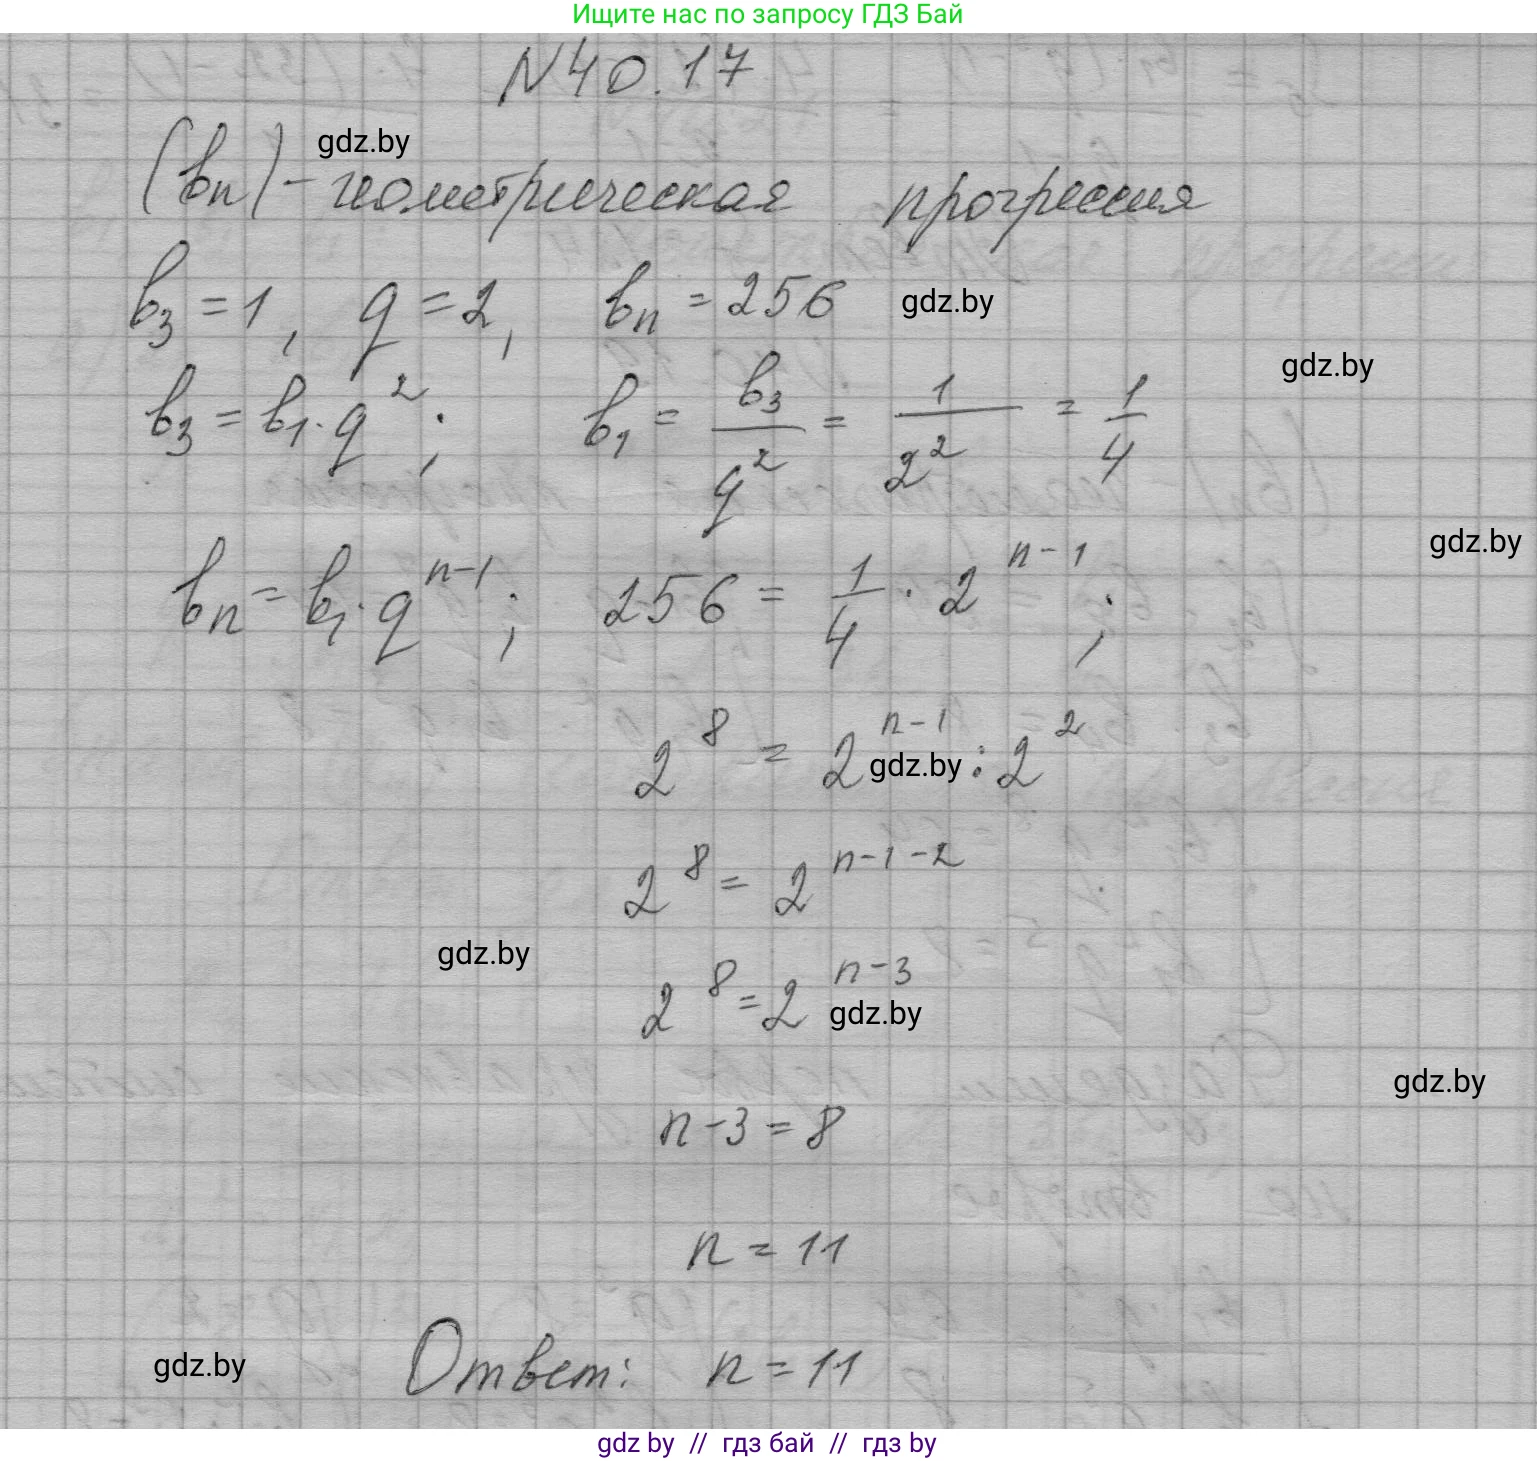 Ищите нас по запросу ГДЗ Бай
N40.17
gdz.by
(bn) - геометрическая прогрессия
b₃ = 1, q = 2, bn = 256
gdz.by
gdz.by
b₃ = b₁ · q²; b₁ = b₃/q² = 1/2² = 1/4
gdz.by
bn = b₁ · qⁿ⁻¹; 256 = 1/4 · 2ⁿ⁻¹;
2⁸ = 2ⁿ⁻¹ : 2²
gdz.by
2⁸ = 2ⁿ⁻¹⁻²
gdz.by
2⁸ = 2ⁿ⁻³
gdz.by
gdz.by
n - 3 = 8
n = 11
gdz.by
Ответ: n = 11
gdz by // гдз бай // гдз by